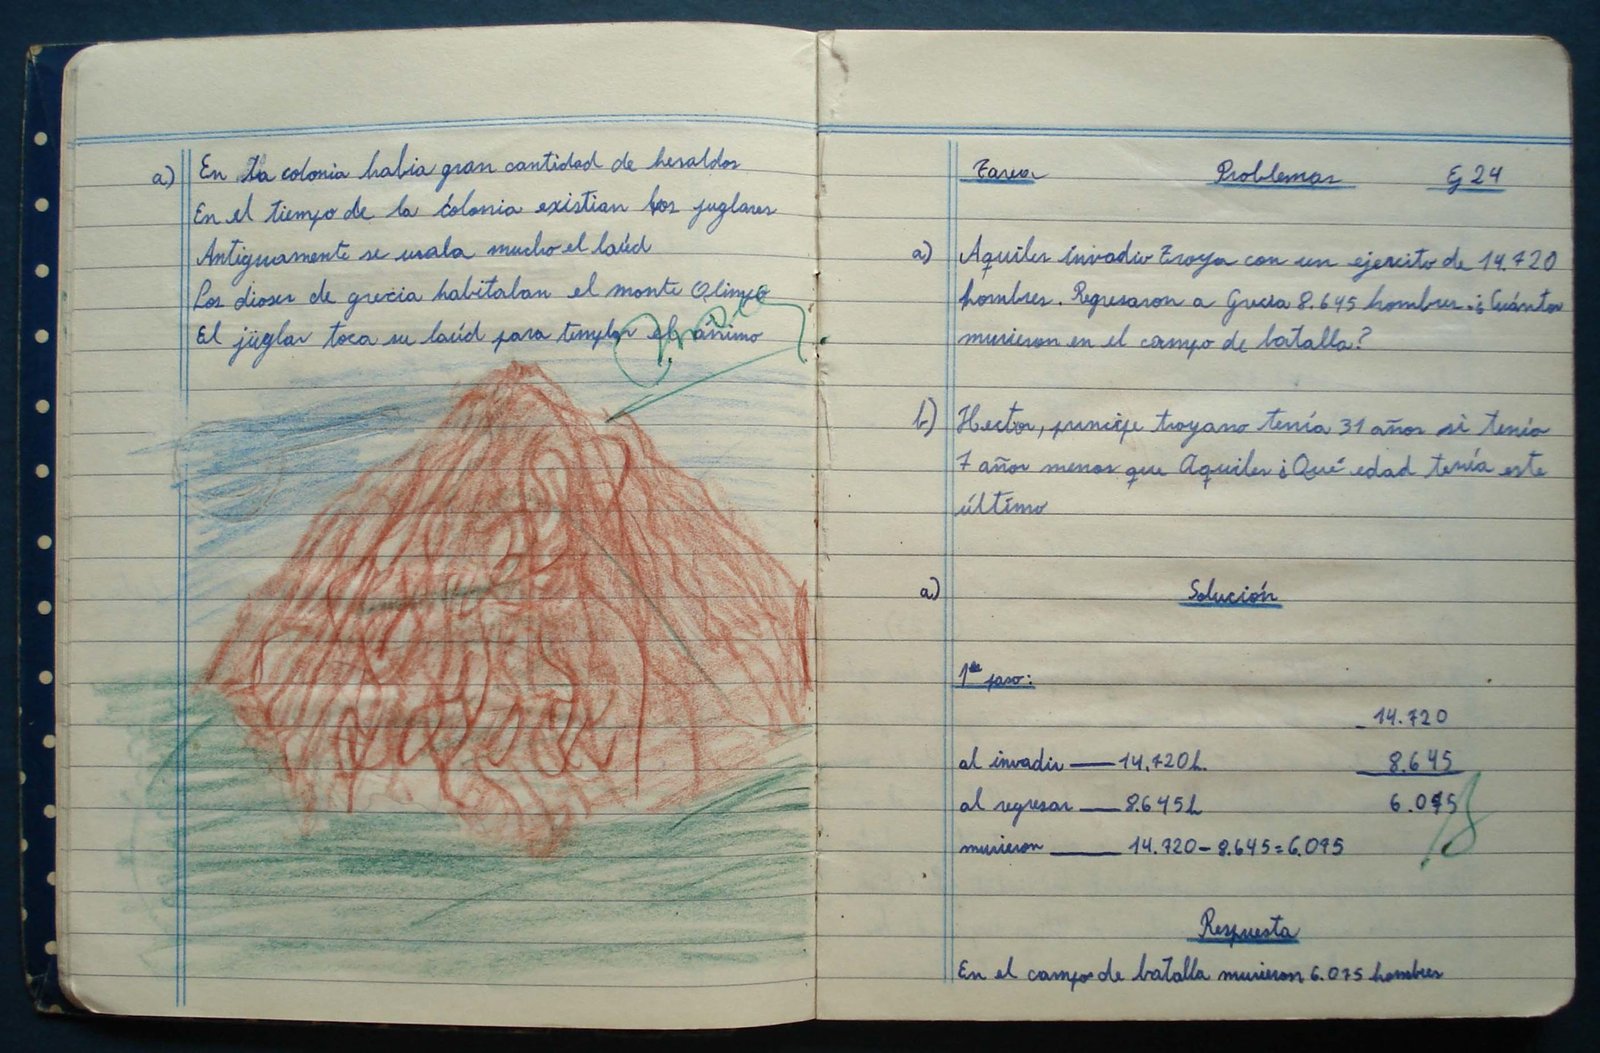 a) En la colonia habia gran cantidad de heraldos
En el tiempo de la colonia existian los juglares
Antiguamente se usaba mucho el laúd
Los dioses de grecia habitaban el monte Olimpo
El juglar toca su laúd para templar el ánimo
Tarea Problemas Ej 24
a) Aquiles invadio Troya con un ejercito de 14.720
hombres. Regresaron a Grecia 8.645 hombres. ¿Cuántos
murieron en el campo de batalla?
b) Hector, principe troyano tenía 31 años si tenía
7 años menos que Aquiles ¿Qué edad tenía este
último
a) Solución
1er paso:
- 14.720
al invadir — 14.720h. 8.645
al regresar — 8.645h 6.075
murieron — 14.720 - 8.645 = 6.075
Respuesta
En el campo de batalla murieron 6.075 hombres